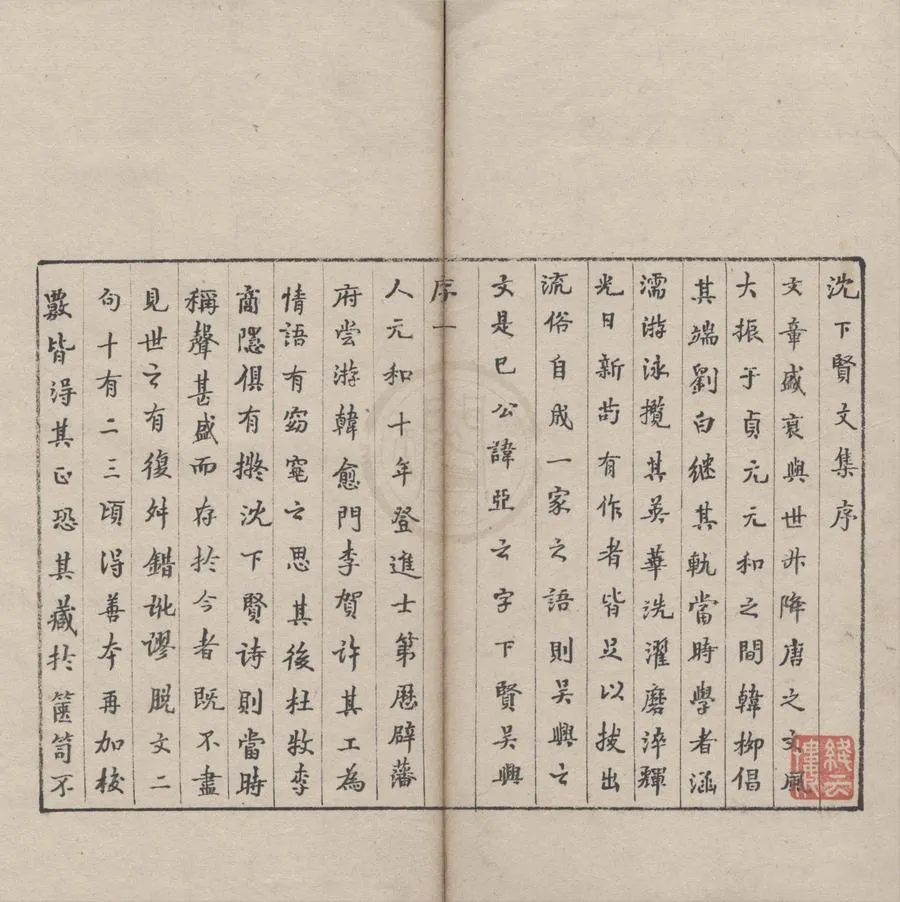 沈下賢文集序
文章盛衰與世升降唐之文風
大振于貞元元和之間韓柳倡
其端劉白継其軌當時學者涵
濡游泳攬其英華洗濯磨淬輝
光日新苟有作者皆足以拔出
流俗自成一家之語則吴興之
文是已公諱亞之字下賢吴興
序一
人元和十年登進士第歴辟藩
府嘗游韓愈門李賀許其工為
情語有窈窕之思其後杜牧李
商隱俱有擬沈下賢诗則當時
稱聲甚盛而存扵今者既不盡
見世之有復舛錯訛謬脱文二
句十有二三頃得善本再加校
覈皆得其正恐其藏扵篋笥不